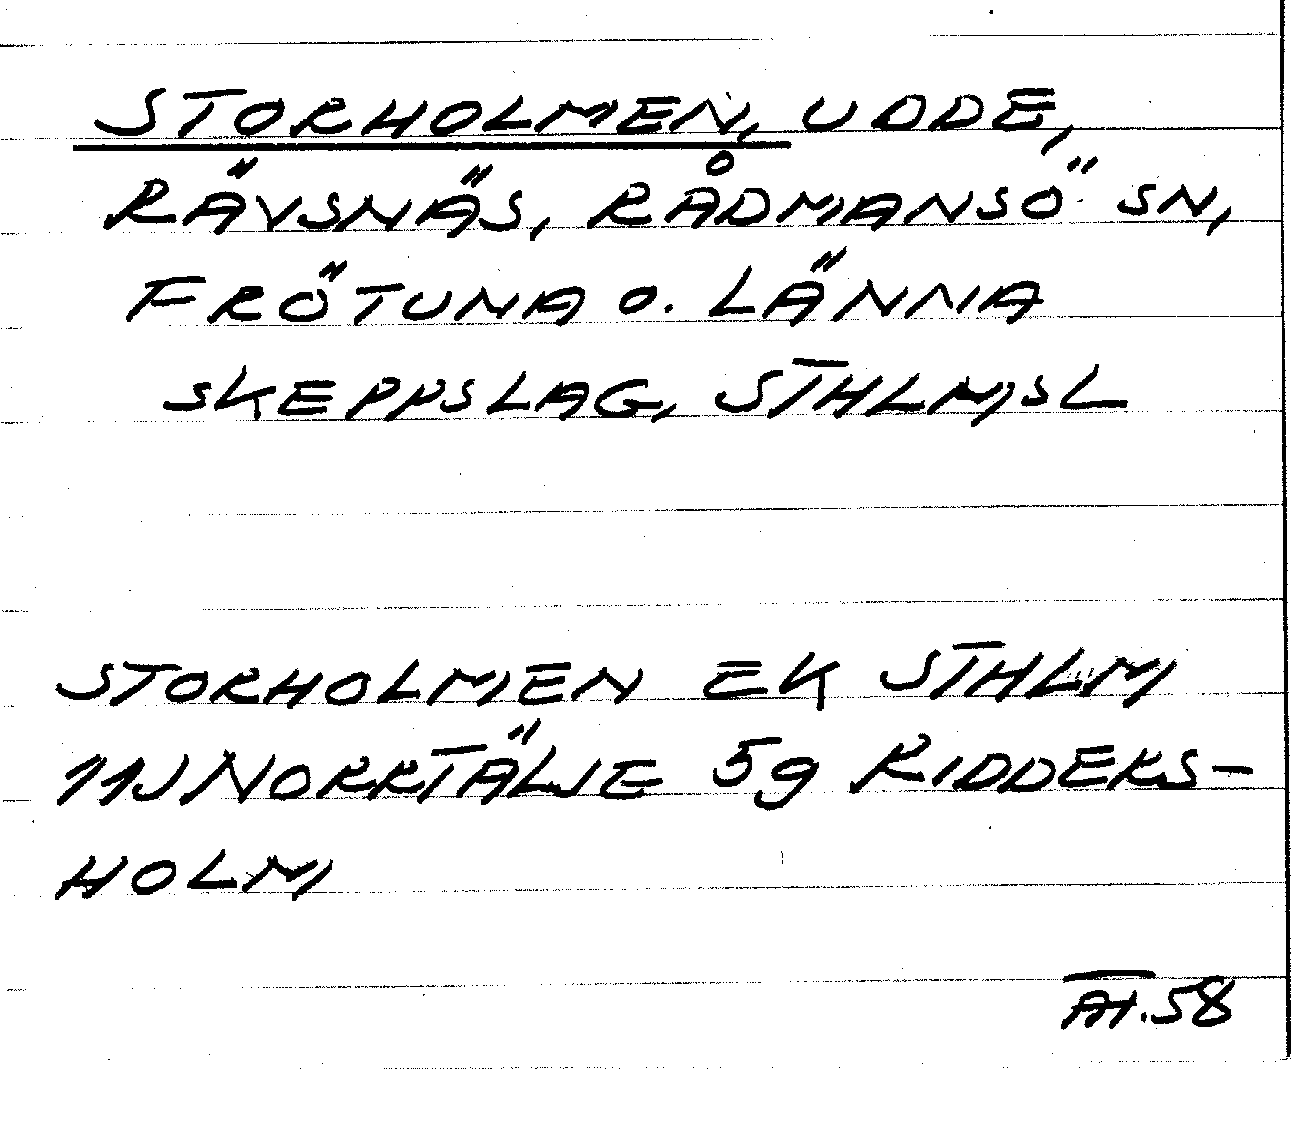 STORHOLMEN, UDDE,
RÄVSNÄS, RÅDMANSÖ SN,
FRÖTUNA o. LÄNNA
SKEPPSLAG, STHLMSL
STORHOLMEN EK STHLM
11J NORRTÄLJE 5g RIDDERS-
HOLM
58